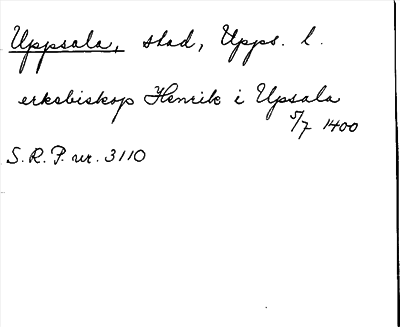 Uppsala, stad, Upps. l.
erkebiskop Henrik i Upsala
5/7 1400
S. R. P. nr. 3110